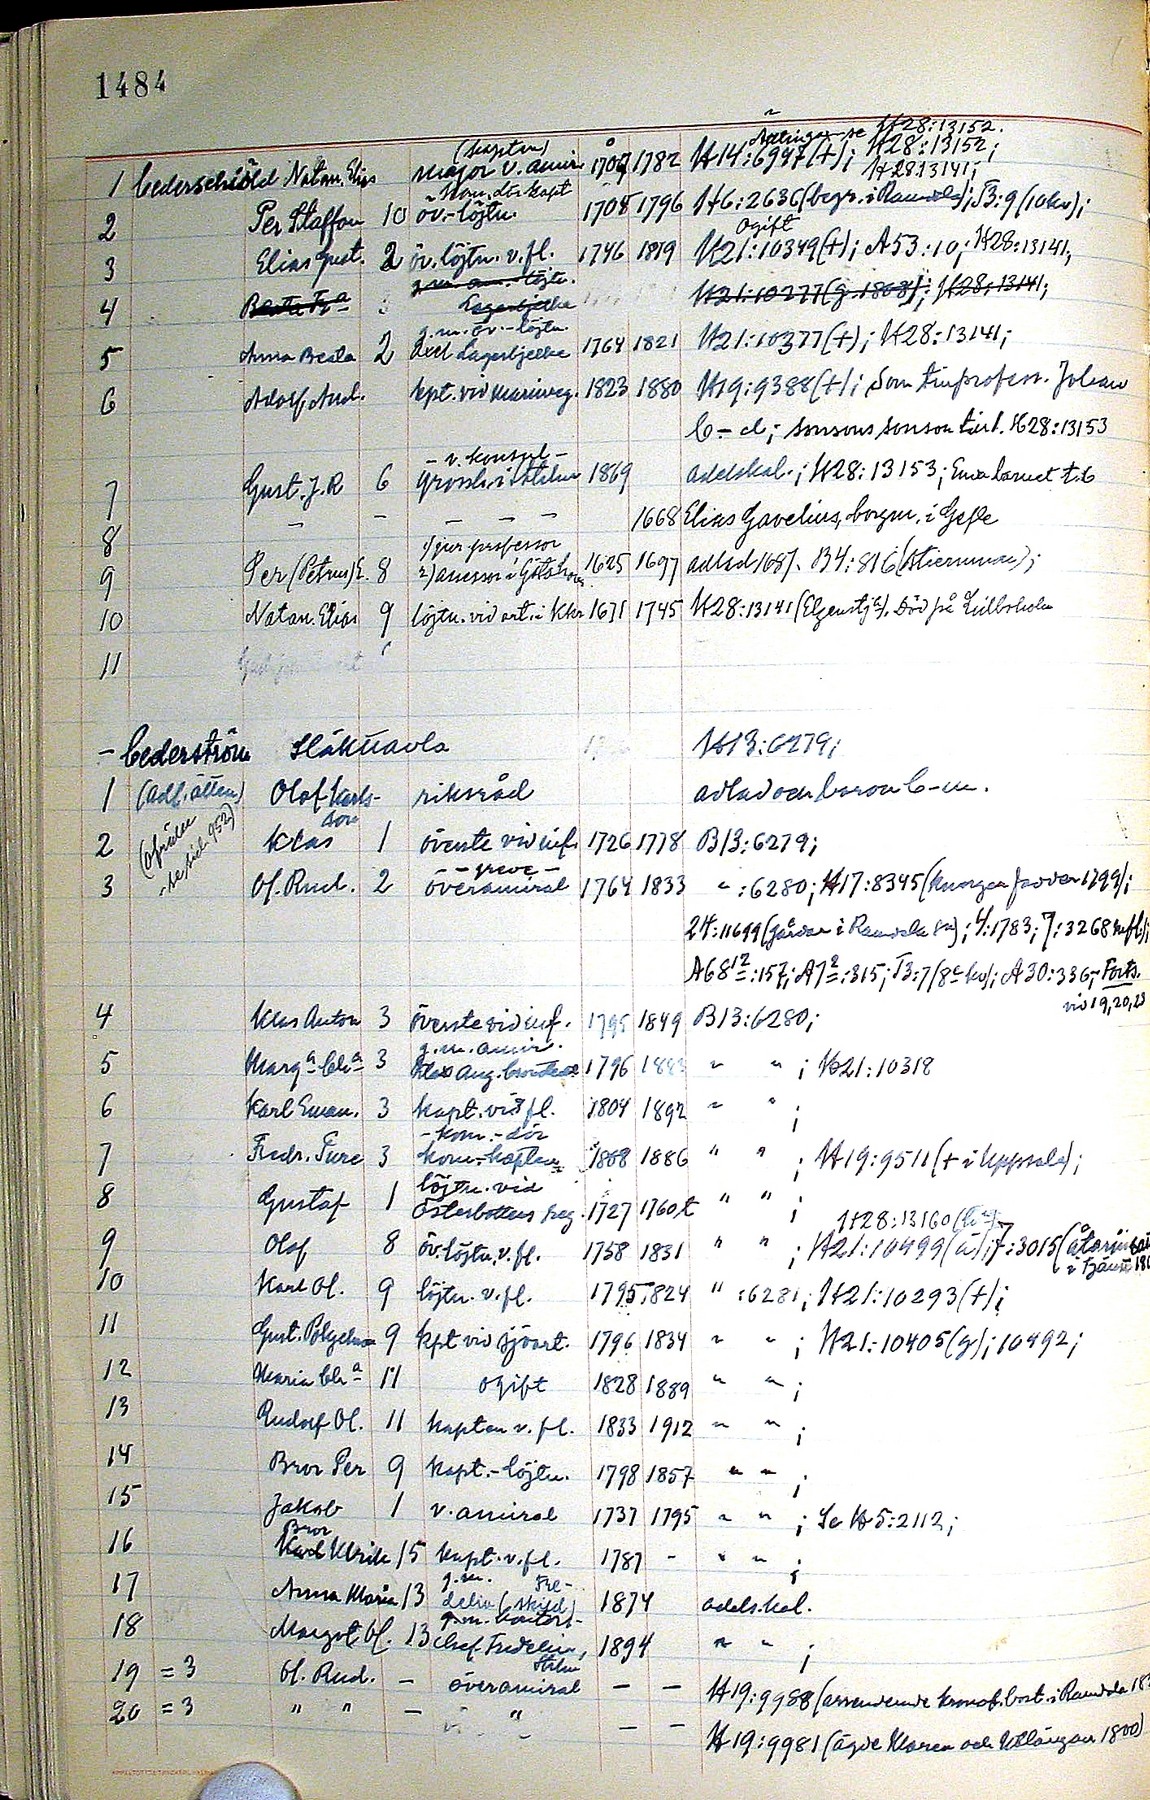 1484
H28:13152.
Antingen se
(kapten) H28:13152;
1 Cederschiöld Natan. Elias major v. amir. 1700 1782 H14:6947(+); H28:13141;
kom. där kapt
2 Per Staffan 10 öv.-löjtn. 1708 1796 H6:2636 (begr. i Ramdala); T3:9 (10kv);
Ogift
3 Elias Gust. 2 öv. löjtn. v. fl. 1746 1819 H21:10349(+); A53:10; H28:13141;
4 H21:10277(g. 1808); H28:13141;
g. m. öv.-löjtn.
5 Anna Beata 2 Axel Lagerbjelke 1764 1821 H21:10377(+); H28:13141;
6 Adolf And. kpt. vid marinreg. 1823 1880 H19:9388(+); Som tinprofess. Johan
C-d; sonsons sonson till H28:13153
- v. konsul -
7 Gust. J. R 6 grossh. i Sthlm 1869 adelskal.; H28:13153;
8 - - - - - 1668 Elias Gavelius, borgm. i Gefle
1) jur professor
9 Per (Petrus) E. 8 2) assessor i Göta hovr 1625 1697 adlad 1687. B4:816 (Stiernman);
10 Natan. Elias 9 löjtn. vid art. i Khr 1671 1745 H28:13141 (Elgenstj-a). Död på Lillöholm
11
- Cederström Släkttavla H13:6279;
1 (adl. ätten) Olof Karls- riksråd adlad och baron C-m.
son
(Ofrälse
- se sid. 952)
2 Klas 1 överste vid inf. 1726 1778 B13:6279;
- greve -
3 Of. Rud. 2 överamiral 1764 1833 " :6280; H17:8345 (kungen fadder 1799);
24:11699 (gårdar i Ramdala sn); 4:1783; 7:3268 m fl.;
A68 12:157; A7 2:315; T3:7 (8e kv); A30:336; Forts.
vid 19, 20, 23
4 Klas Anton 3 överste vid inf. 1795 1849 B13:6280;
g. m. amir.
5 Marga Cha 3 Klas Aug. Cronstedt 1796 1883 " " ; H21:10318
6 Karl Eman. 3 kapt. vid fl. 1804 1892 " " ;
- kom. - dör
7 Fredr. Ture 3 kom.-kapten 1808 1886 " " ; H19:9511 (+ i Uppsala);
löjtn. vid
8 Gustaf 1 Österbottens reg. 1727 1760t " " ;
H28:13160
9 Olof 8 öv. löjtn. v. fl. 1758 1831 " " ; H21:10499 (a); 7:3015
10 Karl Ol. 9 löjtn. v. fl. 1795 1824 " :6281; H21:10293(+);
11 Gust. 9 kpt vid sjöart. 1796 1834 " " ; H21:10405 (g); 10492;
12 Maria Cha 11 ogift 1828 1889 " " ;
13 Rudolf Ol. 11 kapten v. fl. 1833 1912 " " ;
14 Bror Per 9 kapt.-löjtn. 1798 1857 " " ;
15 Jakob 1 v. amiral 1737 1795 " " ; Se H5:2112;
Bror
16 Karl Ulrik 15 kapt. v. fl. 1787 - " " ;
g. m. Fre-
17 Anna Maria 13 delin (skild) 1874 adelskal.
g. m. kontors-
18 Margot Ol. 13 chef Fredelin, 1894 " " ;
Sthlm
19 = 3 Of. Rud. - överamiral - - H19:9988 (arrenderade kronof. bost. i Ramdala
20 = 3 " " - " - - H19:9981 (ägde Maren och Utlängan 1800)